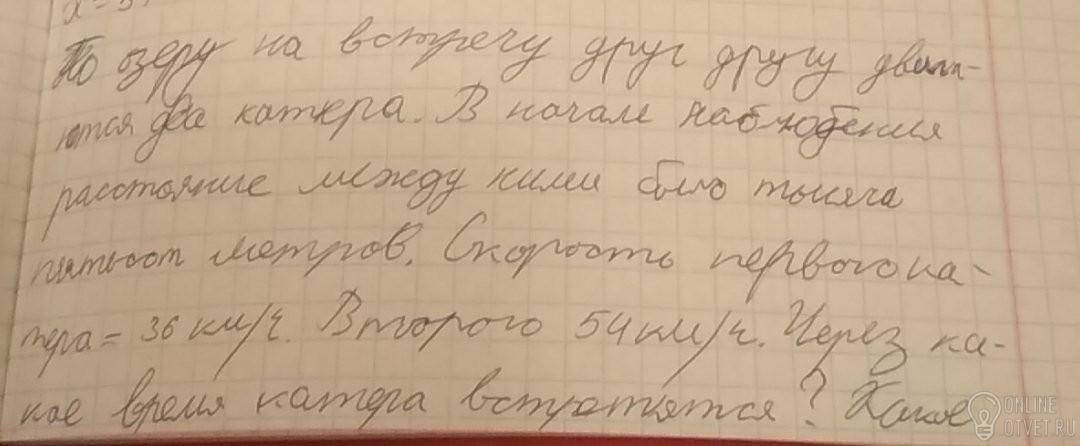 По озеру на встречу друг другу движ-
ются два катера. В начале наблюдения
расстояние между ними было тысяча
пятьсот метров. Скорость первого ка-
тера = 36 км/ч. Второго 54 км/ч. Через ка-
кое время катера встретятся? Какое
ONLINE
OTVET.RU